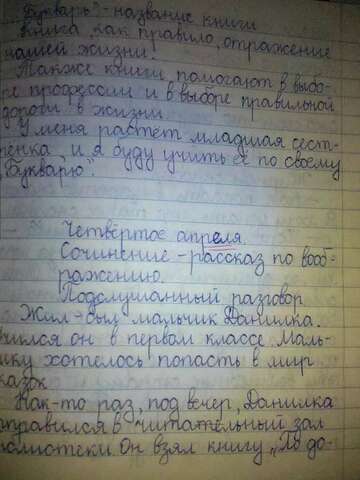 "Букварь" - название книги
Книга, как правило, отражение
нашей жизни.
Также книги помогают в выбо-
ре профессии и в выборе правильной
дороги в жизни.
У меня растёт младшая сест-
рёнка, и я буду учить её по своему
"Букварю".
Четвёртое апреля.
Сочинение - рассказ по вооб-
ражению.
Подслушанный разговор
Жил-был мальчик Данилка.
чился он в первом классе. Маль-
ику хотелось попасть в мир
казок.
Как-то раз, под вечер, Данилка
тправился в читательный зал
иблиотеки. Он взял книгу "По до-